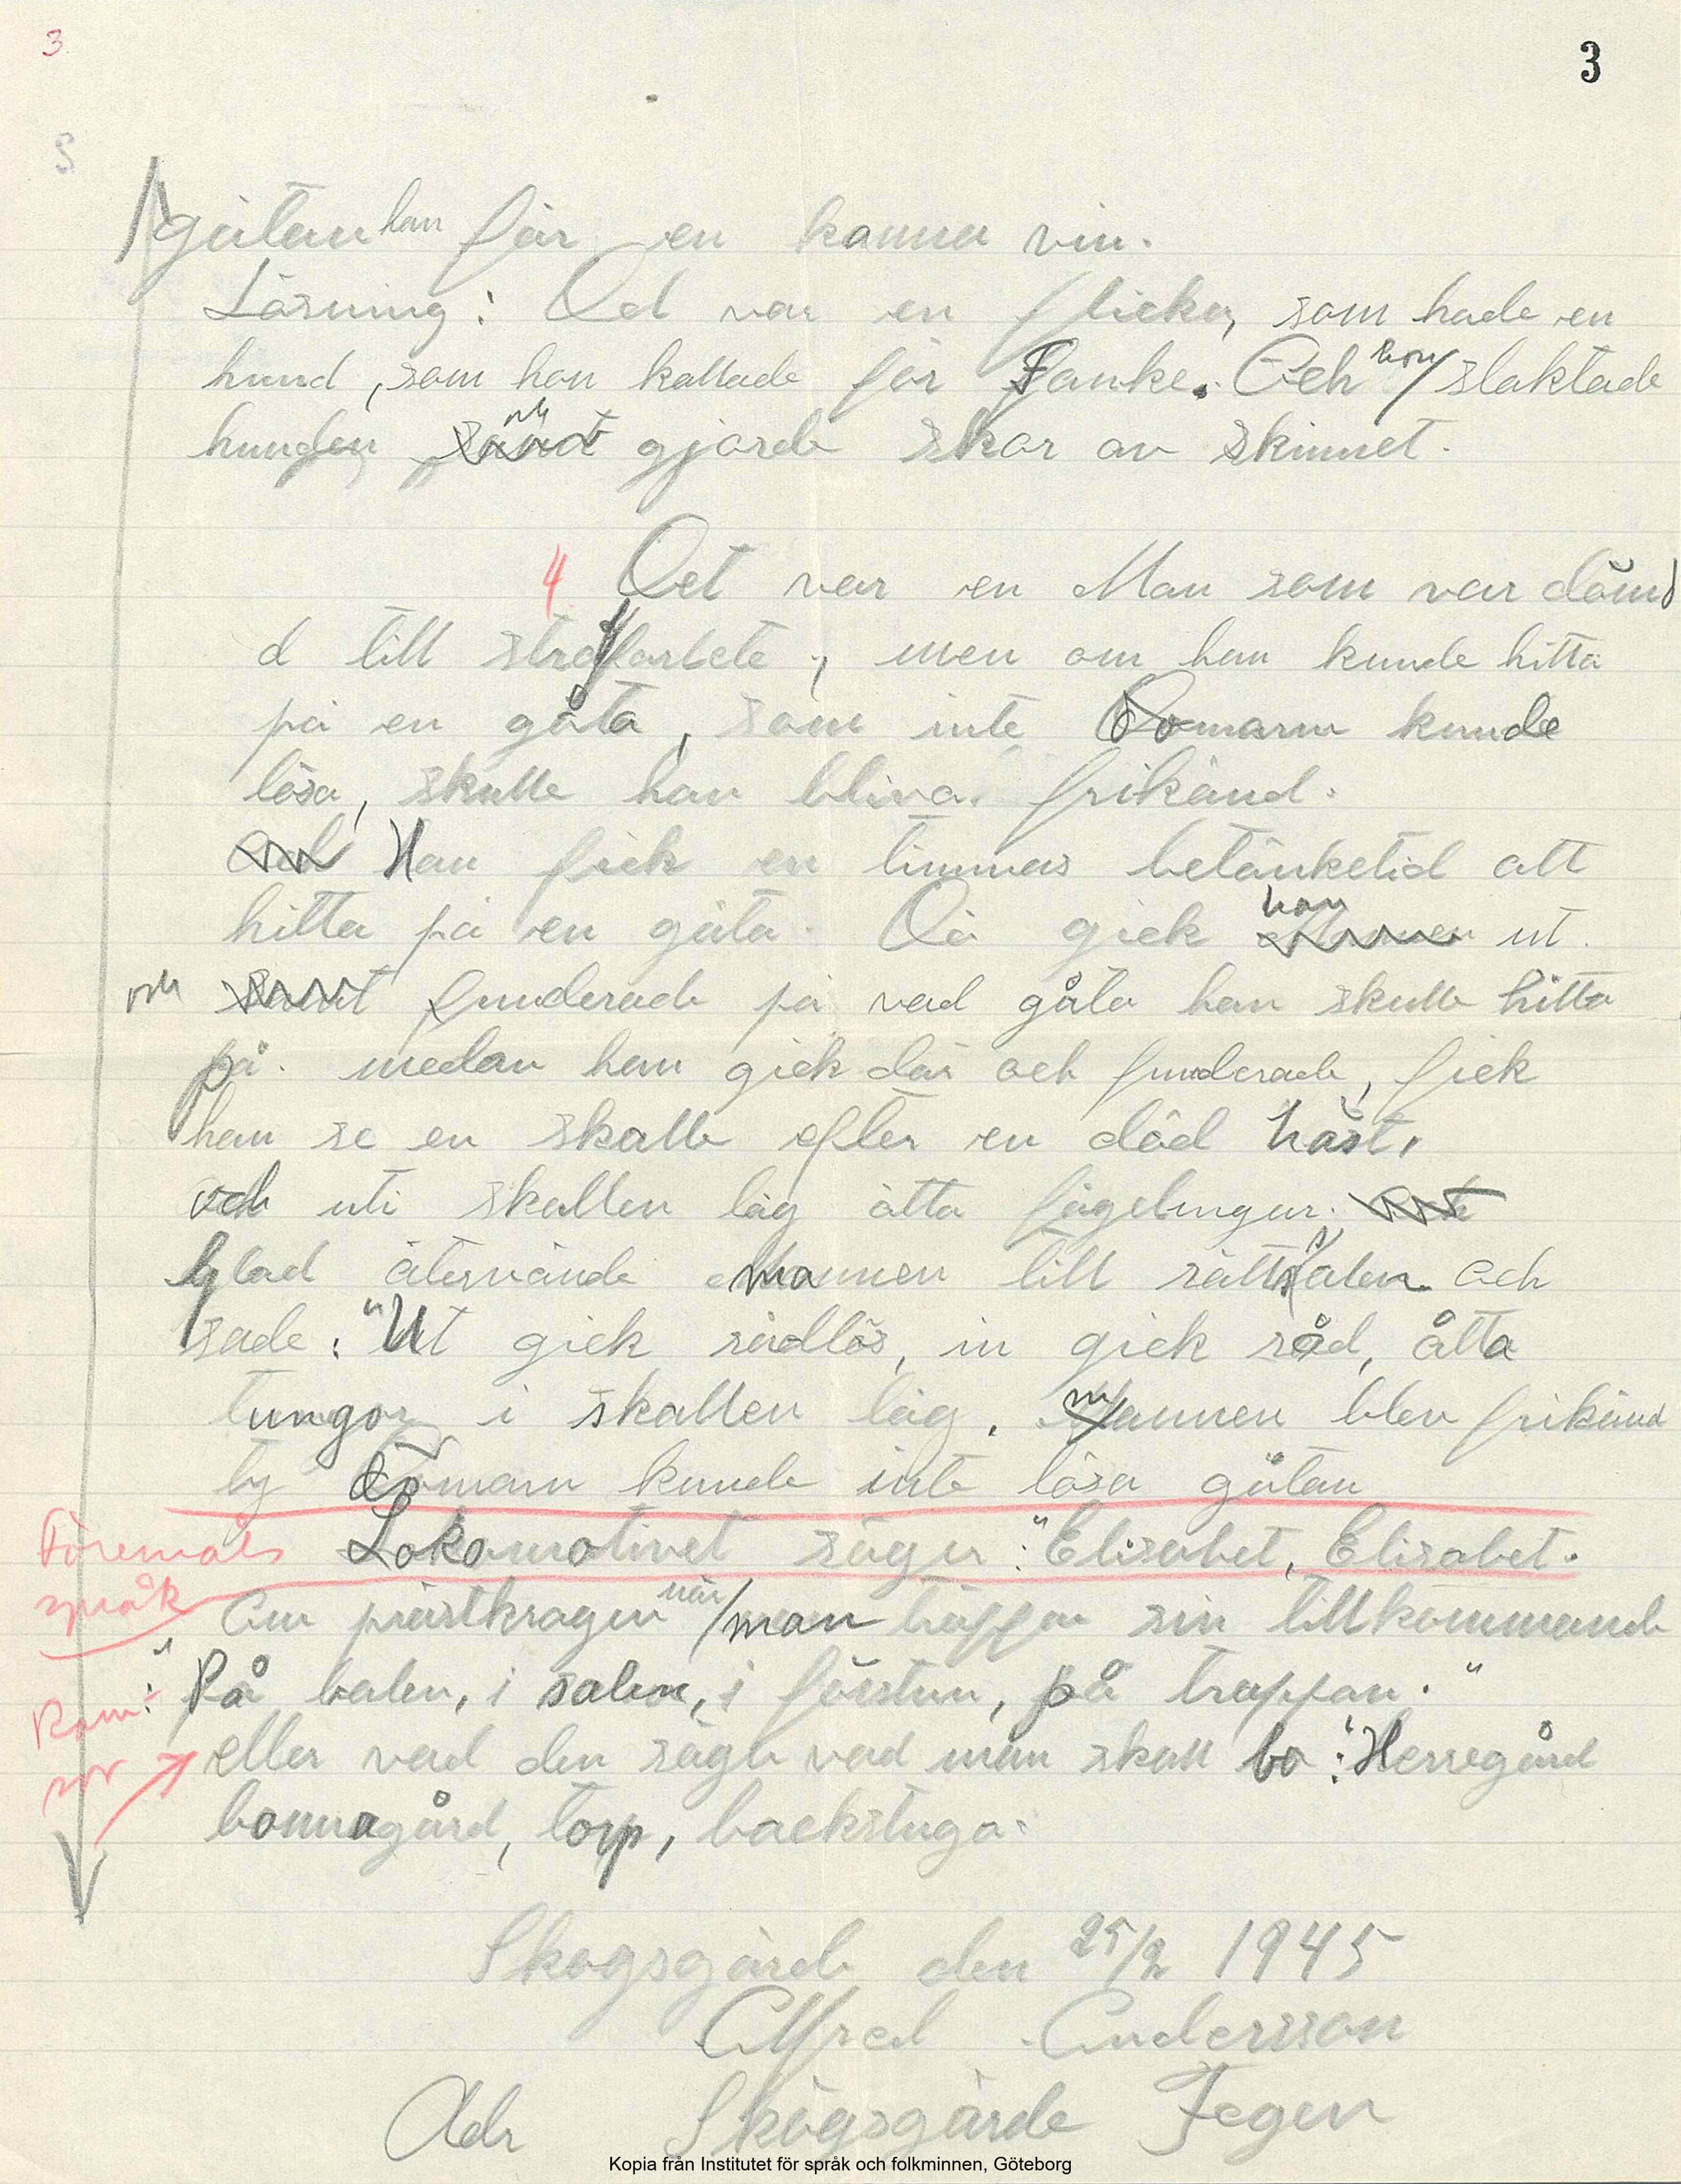 3
3
gåtan han får en kanna vin.
Lösning: Det var en flicka, som hade en
hund, som hon kallade för Fanke. Och hon slaktade
hunden och gjorde skor av skinnet.
4 Det var en Man som var dömd
d till straffarbete, men om han kunde hitta
på en gåta, som inte Domarn kunde
lösa, skulle han bliva frikänd.
Han fick en timmas betänketid att
hitta på en gåta. Då gick han ut.
och funderade på vad gåta han skulle hitta
på. medan han gick där och funderade, fick
han se en skalle efter en död häst.
och uti skallen låg åtta fågelungar.
Glad återvände mannen till rättssalen och
sade: "Ut gick rådlös, in gick råd, åtta
tungor i skallen låg. mannen blev frikänd
ty domarn kunde inte lösa gåtan
Föremåls Lokomotivet säger: "Elisabet, Elisabet.
språk Om prästkragen när man träffar sin tillkommande
: "På balen, i salen, i förstun, på trappan."
Ram-
sor eller vad den säger vad man skall bo: "Herregård
bonnagård, torp, backstuga.
Skogsgärde den 25/2 1945
Alfred Andersson
Adr Skogsgärde Tegen
Kopia från Institutet för språk och folkminnen, Göteborg